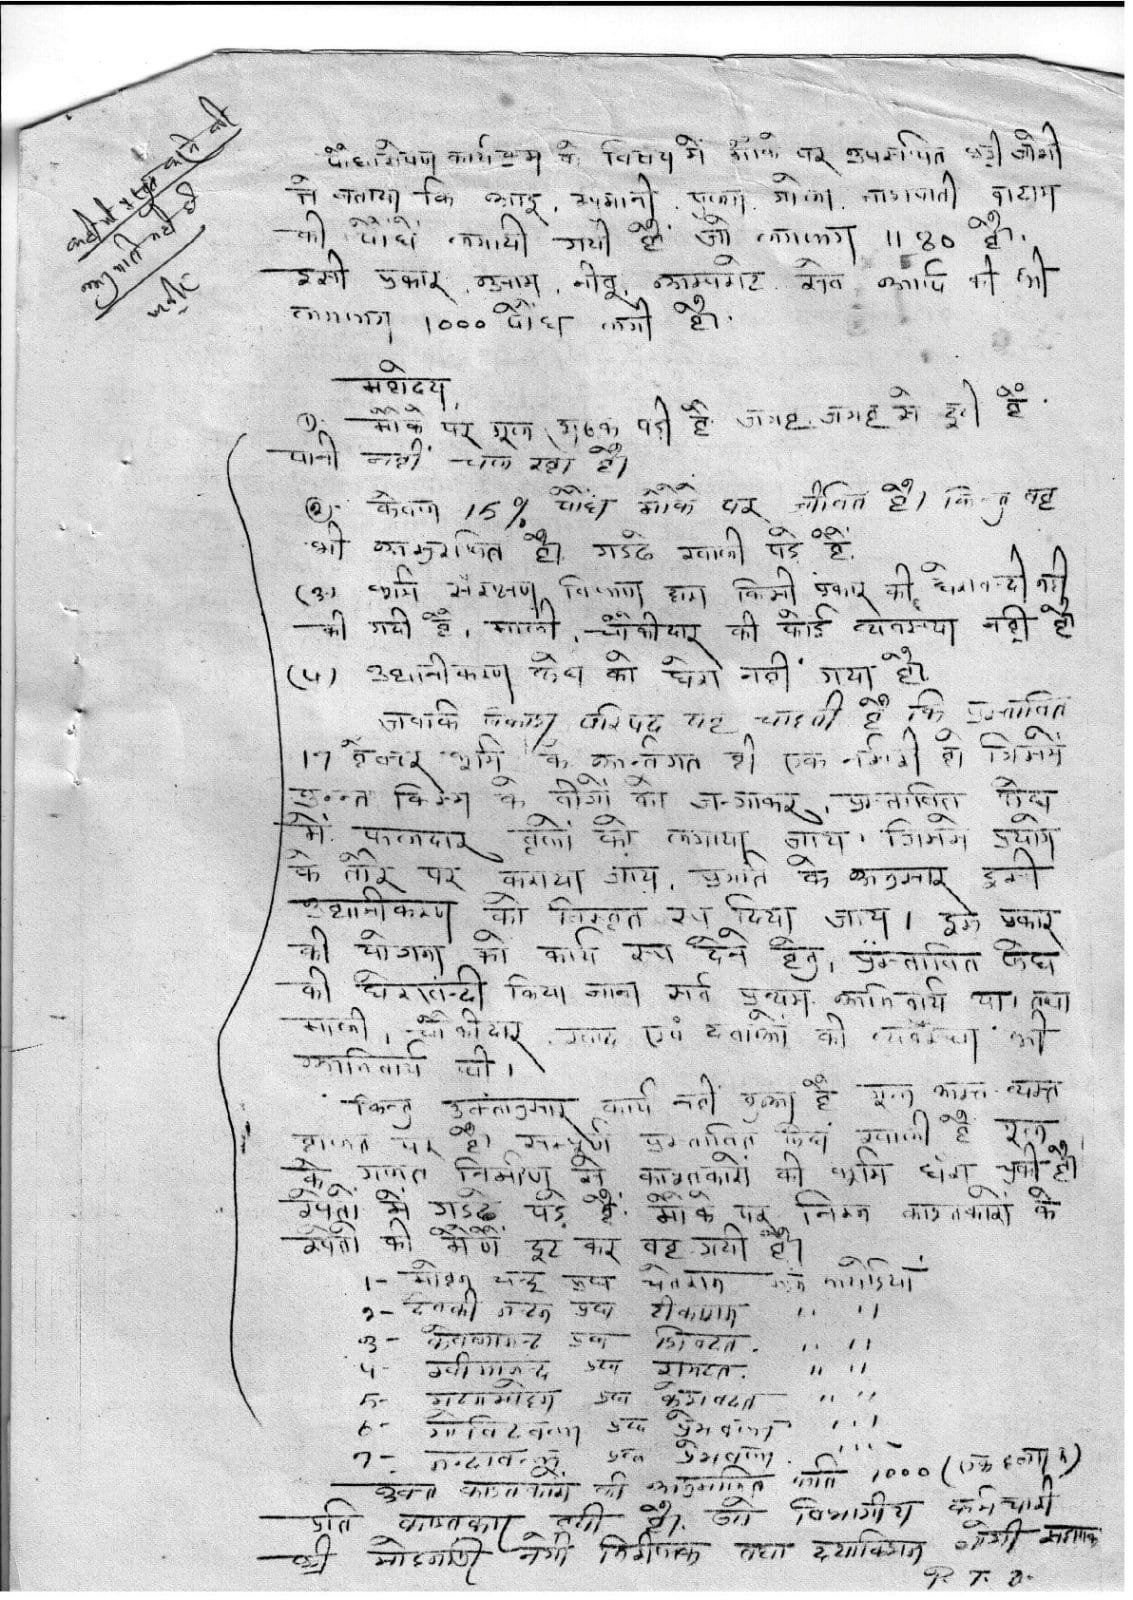 पौधारोपण कार्यक्रम के विषय में मौके पर उपस्थित श्री जोशी
ने बताया कि आड़ू, खुमानी, पुलम, नाशपाती बादाम
की पौधें लगायी गयी हैं जो लगभग 1180 है।
इसी प्रकार नीबू, सेव आदि की भी
लगभग 1000 पौध लगी है।
महोदय,
1) मौके पर गूल पड़ी है जगह-जगह से टूटी है।
पानी नहीं चल रहा है।
(2) केवल 15% पौध मौके पर जीवित है। किन्तु वह
भी असुरक्षित है। गडढे खाली पड़े हैं।
(3) भूमि संरक्षण विभाग द्वारा किसी प्रकार की घेराबन्दी नहीं
की गयी है, माली, चौकीदार की कोई व्यवस्था नहीं है
(4) उद्यानीकरण क्षेत्र को घेरा नहीं गया है।
जबकि विकास परिषद यह चाहती है कि प्रस्तावित
17 हैक्टर भूमि के अर्न्तगत ही एक नर्सरी हो जिसमें
उन्नत किस्म के बीजों को जमाकर, प्रस्तावित क्षेत्र
में फलदार वृक्षों को लगाया जाय। जिसमें प्रयोग
के तौर पर कराया जाय, प्रगति के अनुसार इसी
उद्यानीकरण को विस्तृत रूप दिया जाय। इस प्रकार
की योजना को कार्य रूप देने हेतु, प्रस्तावित क्षेत्र
की घेराबन्दी किया जाना सर्व प्रथम अनिवार्य था। तथा
माली, चौकीदार, खाद एवं दवाओं की व्यवस्था भी
अनिवार्य थी।
किन्तु उक्तानुसार कार्य नहीं हुआ है गूल अस्त-व्यस्त
हालत पर है। सम्पूर्ण प्रस्तावित क्षेत्र खाली है गूल
के गलत निर्माण से काश्तकारों की भूमि धंस चुकी है।
खेतों में गडढे पड़े हैं। मौके पर निम्न काश्तकारों के
खेतों की टूट कर बह गयी है।
1- मोहन चन्द्र पुत्र
2- देवकी नन्दन पुत्र टीकाराम " "
3- केवलानन्द पुत्र शिवदत्त. " "
4- पुत्र रामदत्त. " "
5- मदनमोहन पुत्र केशवदत्त " "
6- गोविन्दबल्लभ पुत्र प्रेमबल्लभ " "
7- पुत्र प्रेमबल्लभ. " "
उक्त काश्तकारों की अनुमानित क्षति 1000 (एक हजार)
प्रति काश्तकार हुयी है। जो विभागीय कर्मचारी
श्री नेगी निरीक्षक तथा दयाकिशन जोशी सहायक
P. T. O.